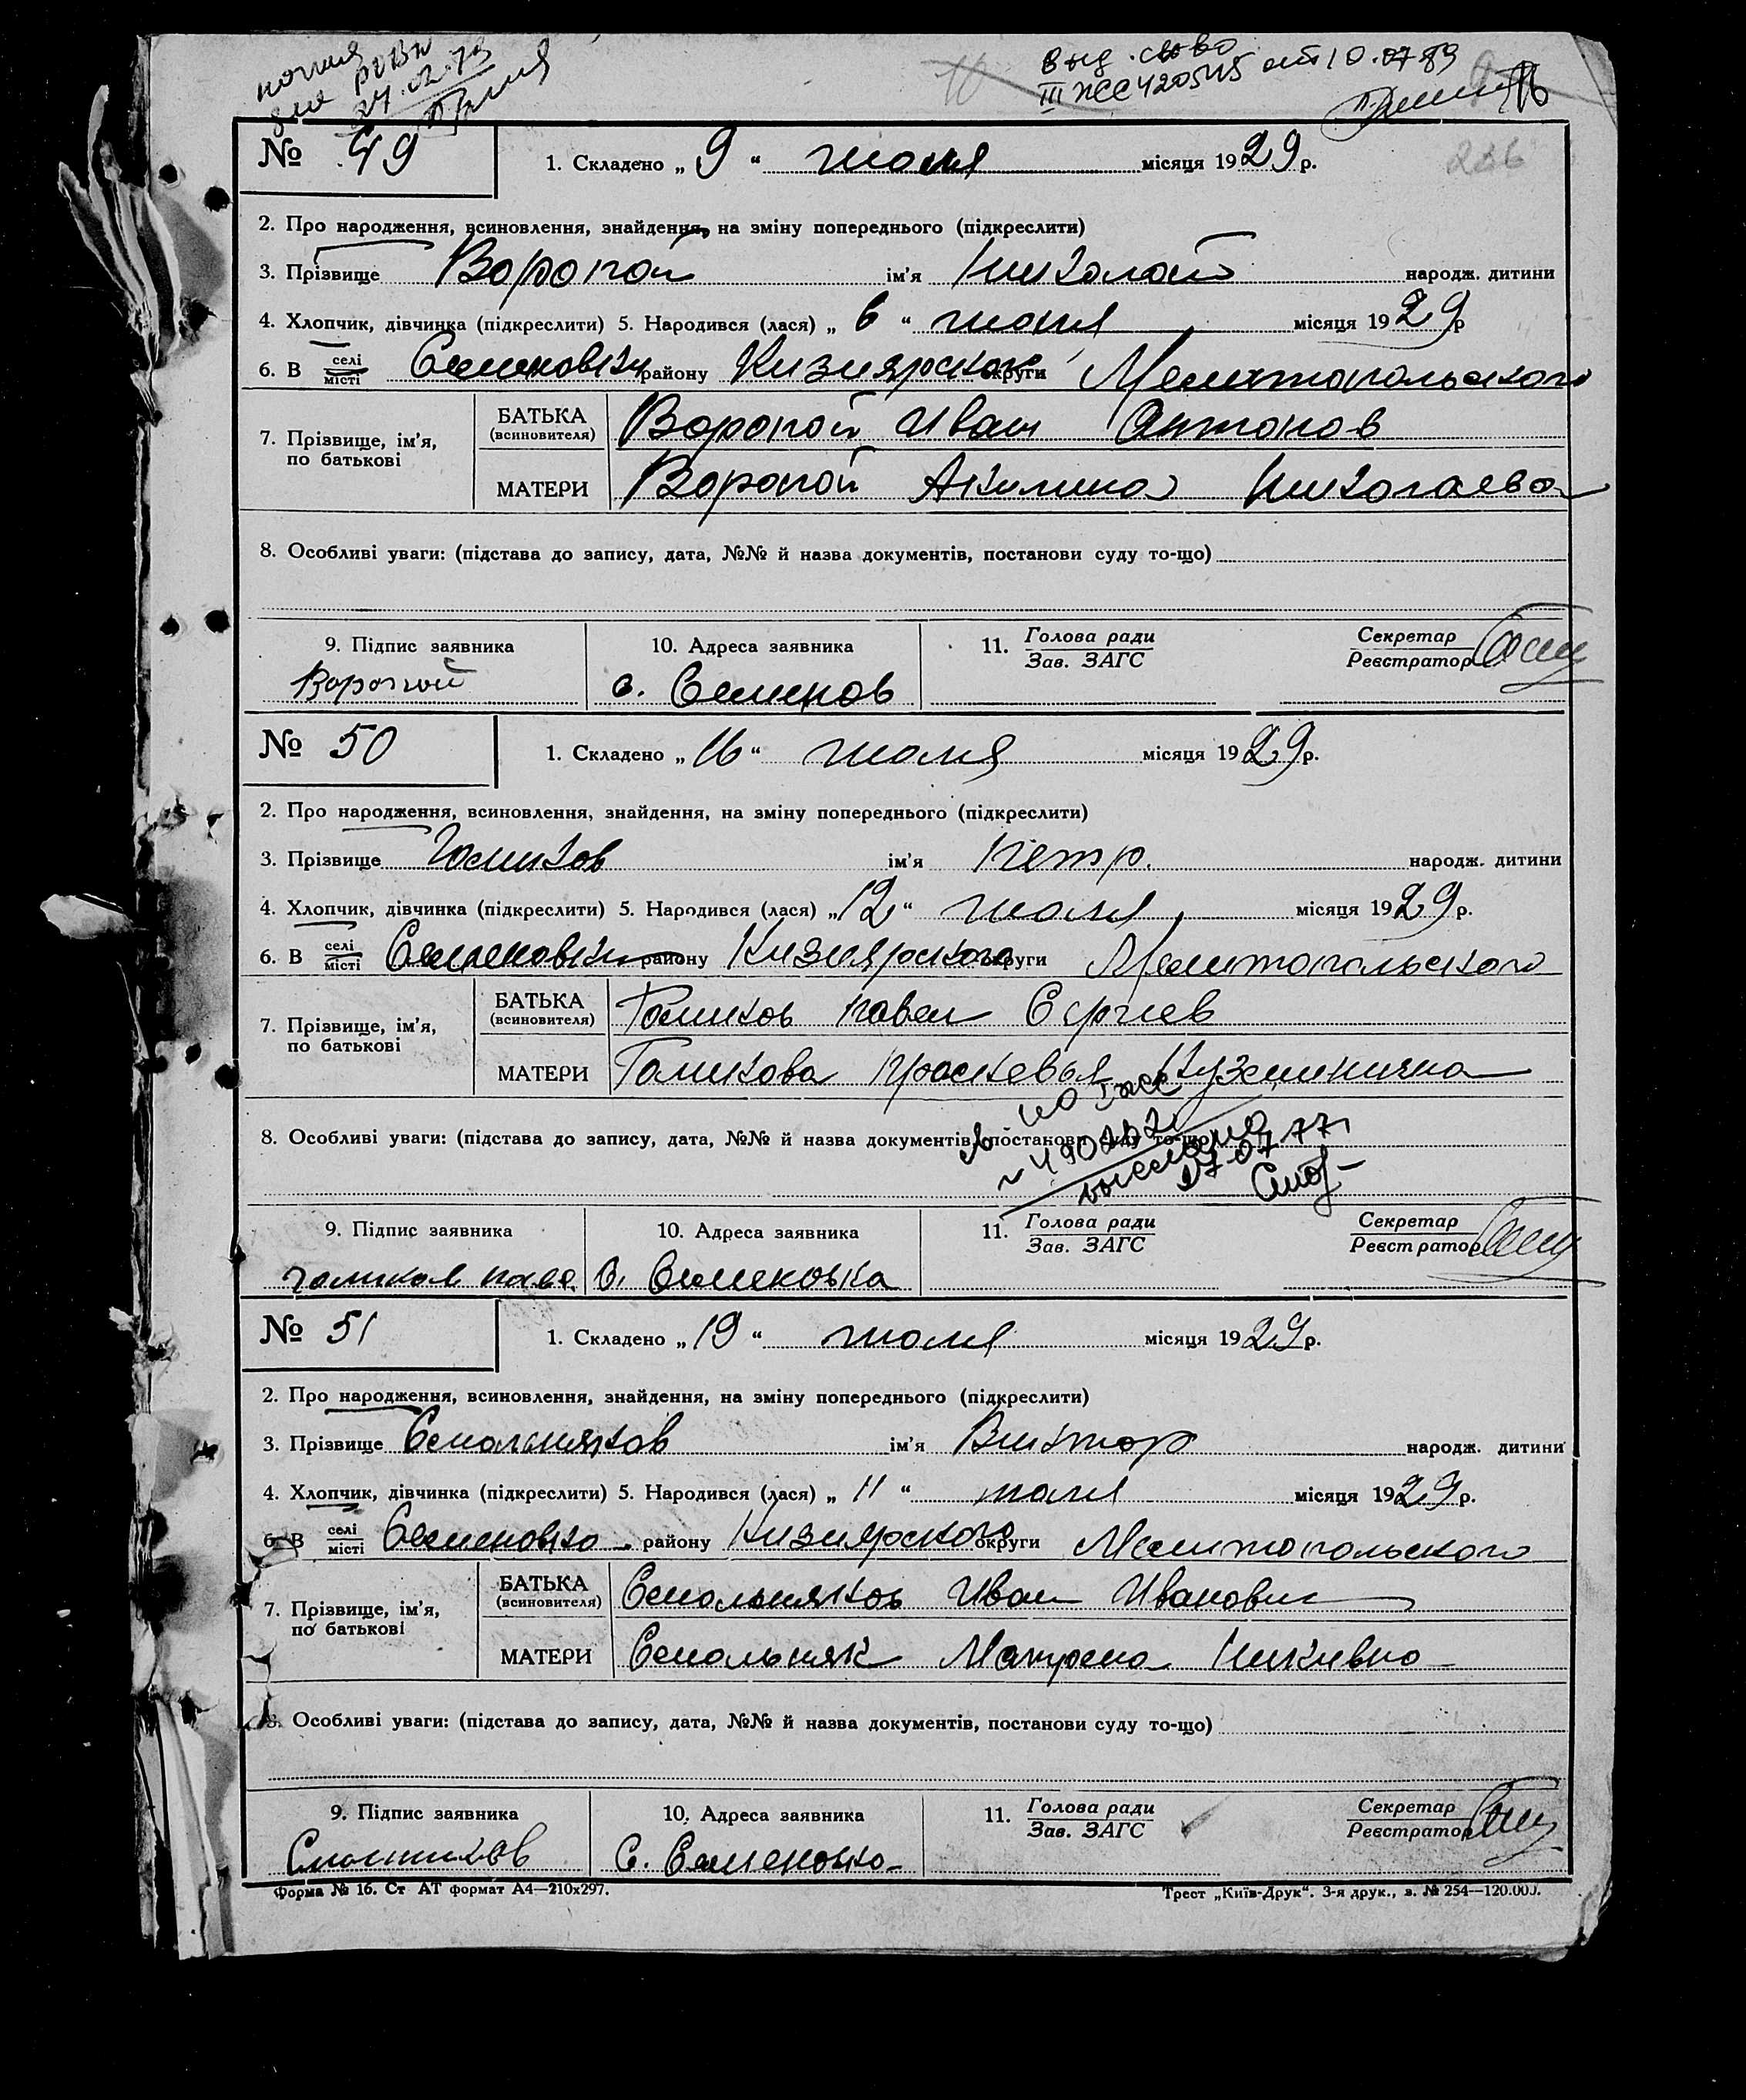 копия
для РОВД
24.02.79
выд. св-во
III ЖС 420545 от 10.07.89
226
№ 49
1. Складено „ 9 “ июля місяця 1929 р.
2. Про народження, всиновлення, знайдення, на зміну попереднього (підкреслити)
3. Прізвище Воропой ім’я Николай народж. дитини
4. Хлопчик, дівчинка (підкреслити) 5. Народився (лася) „ 6 “ июля місяця 1929 р
6. В селі місті Семеновки району Кизиярского округи Мелитопольского
7. Прізвище, ім’я, по батькові
БАТЬКА (всиновителя) Воропой Иван Антонов
МАТЕРИ Воропой Акилина Николаева
8. Особливі уваги: (підстава до запису, дата, №№ й назва документів, постанови суду то-що)
9. Підпис заявника 10. Адреса заявника 11. Голова ради Зав. ЗАГС Секретар Реєстратор
Воропой с. Семенов
№ 50
1. Складено „ 16 “ июля місяця 1929 р.
2. Про народження, всиновлення, знайдення, на зміну попереднього (підкреслити)
3. Прізвище Голиков ім’я Петр. народж. дитини
4. Хлопчик, дівчинка (підкреслити) 5. Народився (лася) „ 12 “ июля місяця 1929 р.
6. В селі місті Семеновки району Кизиярского округи Мелитопольского
7. Прізвище, ім’я, по батькові
БАТЬКА (всиновителя) Голиков Павел Сергиев
МАТЕРИ Голикова Прасковья Кузминична
8. Особливі уваги: (підстава до запису, дата, №№ й назва документів, постанови суду то-що)
27.07.77
9. Підпис заявника 10. Адреса заявника 11. Голова ради Зав. ЗАГС Секретар Реєстратор
голиков паве с. Семеновка
№ 51
1. Складено „ 19 “ июля місяця 1929 р.
2. Про народження, всиновлення, знайдення, на зміну попереднього (підкреслити)
3. Прізвище Смольняков ім’я Виктор народж. дитини
4. Хлопчик, дівчинка (підкреслити) 5. Народився (лася) „ 11 “ июля місяця 1929 р.
6. В селі місті Семеновка району Кизиярского округи Мелитопольского
7. Прізвище, ім’я, по батькові
БАТЬКА (всиновителя) Смольняков Иван Иванович
МАТЕРИ Смольняк Матрена
8. Особливі уваги: (підстава до запису, дата, №№ й назва документів, постанови суду то-що)
9. Підпис заявника 10. Адреса заявника 11. Голова ради Зав. ЗАГС Секретар Реєстратор
с. Семеновка
Форма № 16. Ст АТ формат А4—210х297.
Трест „Київ-Друк“. 3-я друк., з. № 254—120.000.